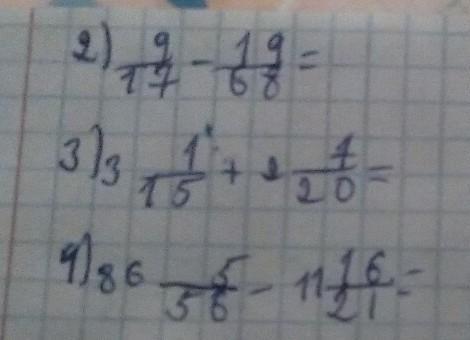 2) 9/17 - 19/68 =
3) 3 1/15 + 2 1/20 =
4) 86 5/56 - 11 16/21 =